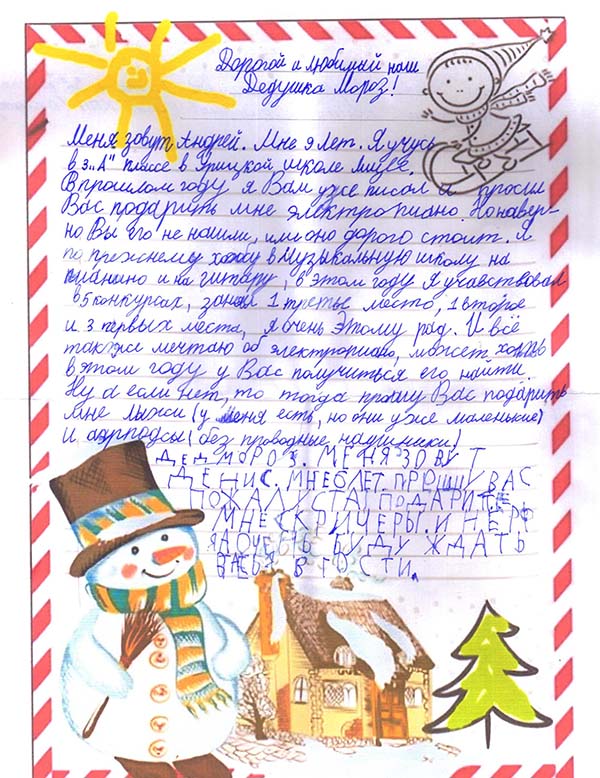 Дорогой и любимый наш
Дедушка Мороз!
Меня зовут Андрей. Мне 9 лет. Я учусь
в 3„А" классе в Грицкой школе лицее.
В прошлом году я Вам уже писал и просил
Вас подарить мне электропиано. Но навер-
но Вы его не нашли, или оно дорого стоит. Я
по прежнему хожу в Музыкальную школу на
пианино и на гитару, в этом году я учавствовал
в 5 конкурсах, занял 1 третье место, 1 второе
и 3 первых места, я очень этому рад. И всё
так же мечтаю об электропиано, может хоть
в этом году у Вас получиться его найти.
Ну а если нет, то тогда прошу Вас подарить
мне лыжи (у меня есть, но они уже маленькие)
и аирподсы (без проводные наушники)
ДЕД МОРОЗ. МЕНЯ ЗОВУТ
ДЕНИС. МНЕ 6 ЛЕТ ПРОШУ ВАС
ПОЖАЛУСТА! ПОДАРИТЕ
МНЕ СКРИЧЕРЫ. И НЕРФ
Я ОЧЕНЬ БУДУ ЖДАТЬ
В ГОСТИ.